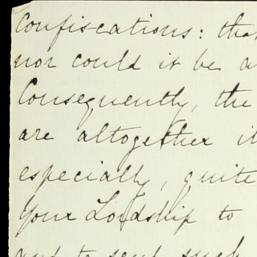 Confiscations: that
nor could it be a
Consequently, the
are altogether
especially, quite
Your Lordship to